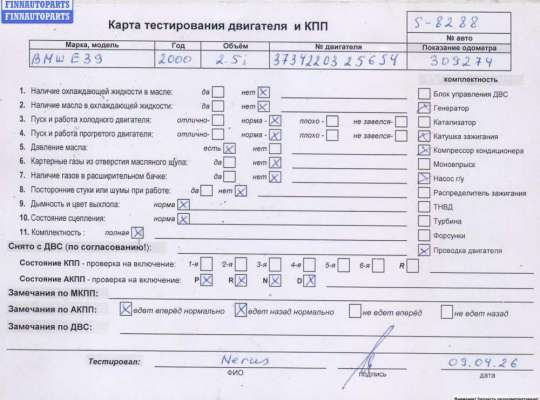 FINNAUTOPARTS
FINNAUTOPARTS
Карта тестирования двигателя и КПП
S-8288
№ авто
Марка, модель Год Объём № двигателя Показание одометра
BMW E39 2000 2.5i 37342203 25654 309274
комплектность
1. Наличие охлаждающей жидкости в масле: да нет
2. Наличие масла в охлаждающей жидкости: да нет
3. Пуск и работа холодного двигателя: отлично- норма - плохо - не завелся-
4. Пуск и работа прогретого двигателя: отлично- норма - плохо - не завелся-
5. Давление масла: есть нет
6. Картерные газы из отверстия масляного щупа: да нет
7. Наличие газов в расширительном бачке: да нет
8. Посторонние стуки или шумы при работе: да нет
9. Дымность и цвет выхлопа: норма
10. Состояние сцепления: норма
11. Комплектность : полная
Блок управления ДВС
Генератор
Катализатор
Катушка зажигания
Компрессор кондиционера
Моновпрыск
Насос г/у
Распределитель зажигания
ТНВД
Турбина
Форсунки
Проводка двигателя
Снято с ДВС (по согласованию!):
Состояние КПП - проверка на включение: 1-я 2-я 3-я 4-я 5-я 6-я R
Состояние АКПП - проверка на включение: P R N D
Замечания по МКПП:
Замечания по АКПП: едет вперёд нормально едет назад нормально не едет вперёд не едет назад
Замечания по ДВС:
Тестировал: Nerus 09.04.26
ФИО подпись дата